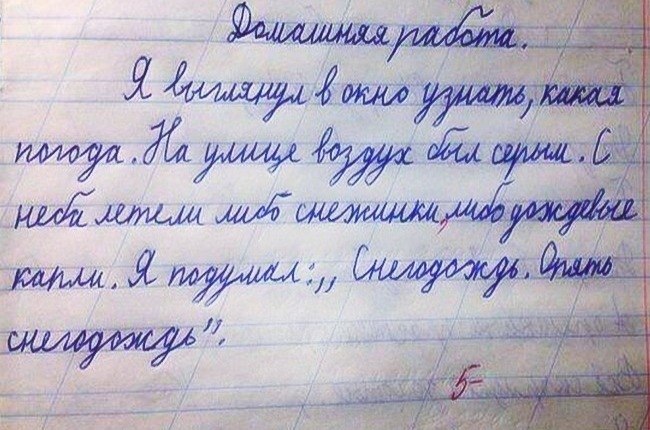 Домашняя работа.
Я выглянул в окно узнать, какая
погода. На улице воздух был серым. С
неба летели либо снежинки, либо дождевые
капли. Я подумал: „ Снегодождь. Опять
снегодождь”.
5-